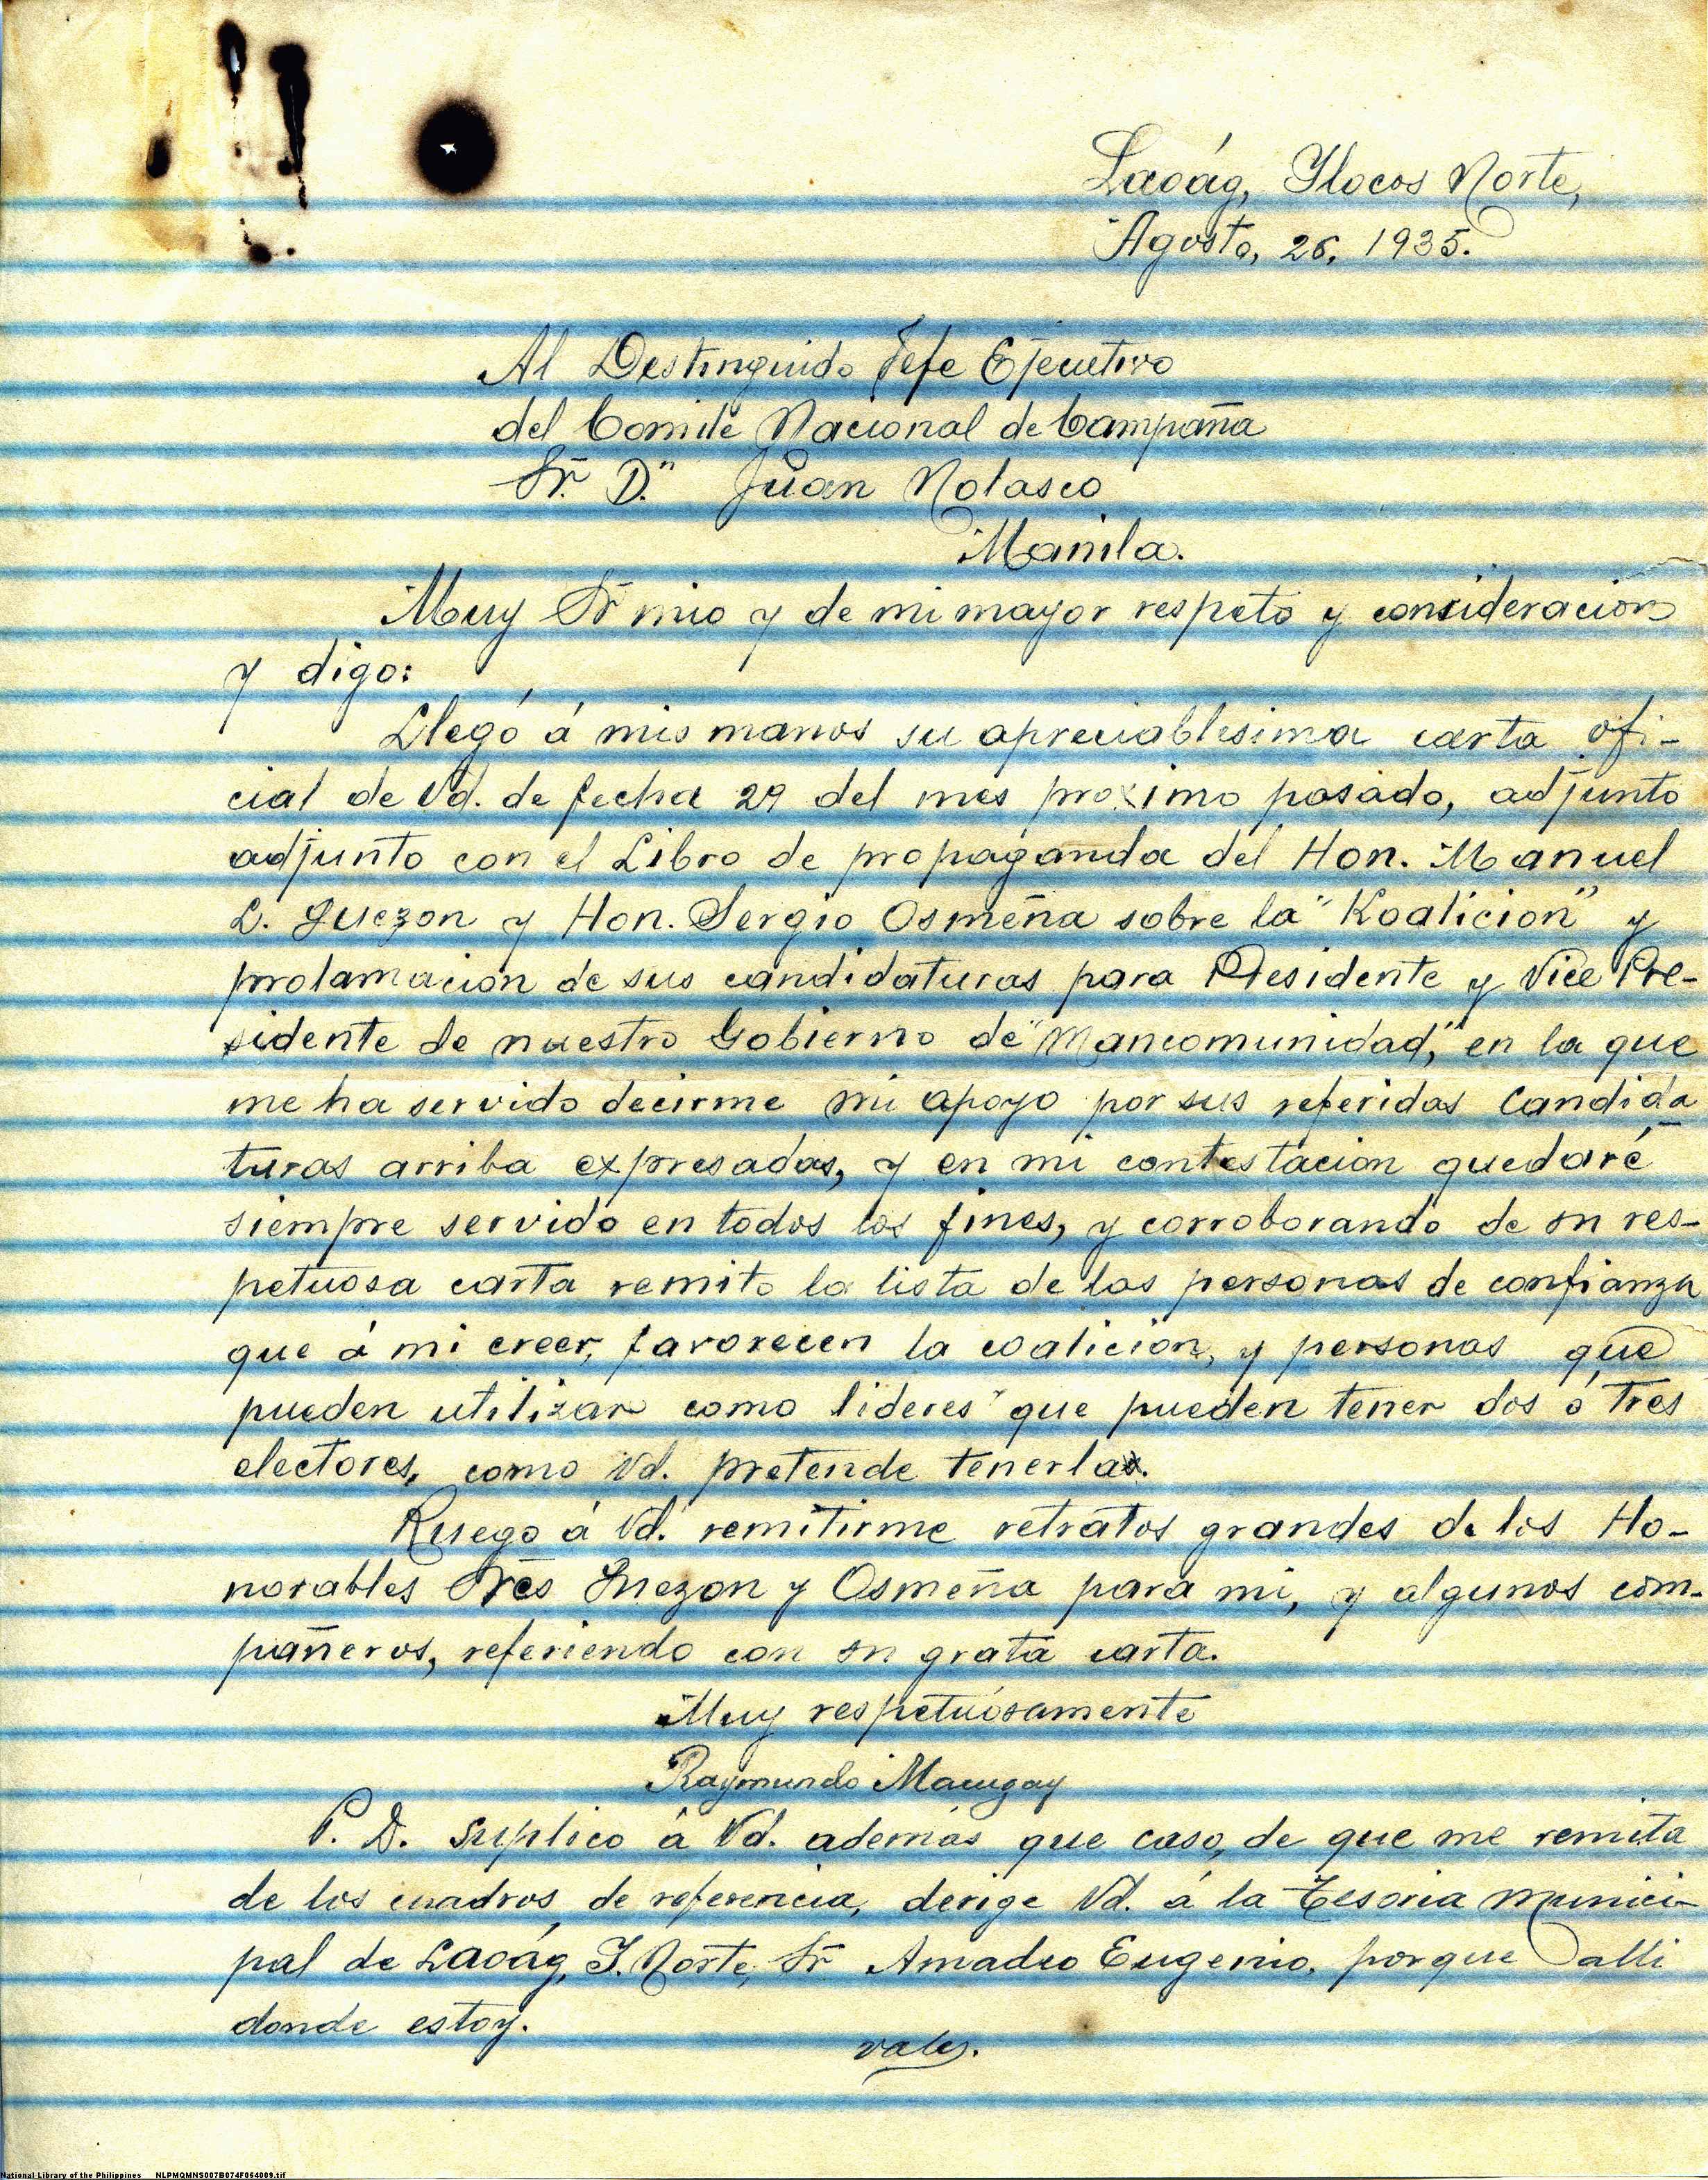 Laoág, Ilocos Norte,
Agosto, 26, 1935.
Al Destinguido Jefe Ejecutivo
del Comité Nacional de Campaña
Sr. D.n Juan Nolasco
Manila.
Muy Sr mio y de mi mayor respeto y consideracion
y digo:
Llegó á mis manos su apreciablesima carta ofi-
cial de Vd. de fecha 29 del mes proximo pasado, adjunto
adjunto con el Libro de propaganda del Hon. Manuel
L. Quezon y Hon. Sergio Osmeña sobre la "Koalicion" y
prolamacion de sus candidaturas para Presidente y Vice Pre-
sidente de nuestro Gobierno de "Mancomunidad," en la que
me ha servido decirme mi apoyo por sus referidas Candida
turas arriba expresadas, y en mi contestacion quedaré
siempre servido en todos los fines, y corroborando de su res-
petuosa carta remito la lista de las personas de confianza
que á mi creer, favorecen la coalicion, y personas que
pueden utilizar como lideres que pueden tener dos ó tres
electores, como Vd. pretende tenerlas.
Ruego á Vd. remitirme retratos grandes de los Ho-
norables Sres Quezon y Osmeña para mi, y algunos com-
pañeros, referiendo con su grata carta.
Muy respetuósamente
Raymundo Macugay
P. D. Suplico á Vd. además que caso, de que me remita
de los cuadros de referencia, derige Vd. á la Tesoria Munici-
pal de Laoág, I. Norte, Sr Amadeo Eugenio, porque alli
donde estoy.
vale.
National Library of the Philippines NLPMQMNS007B074F054009.tif